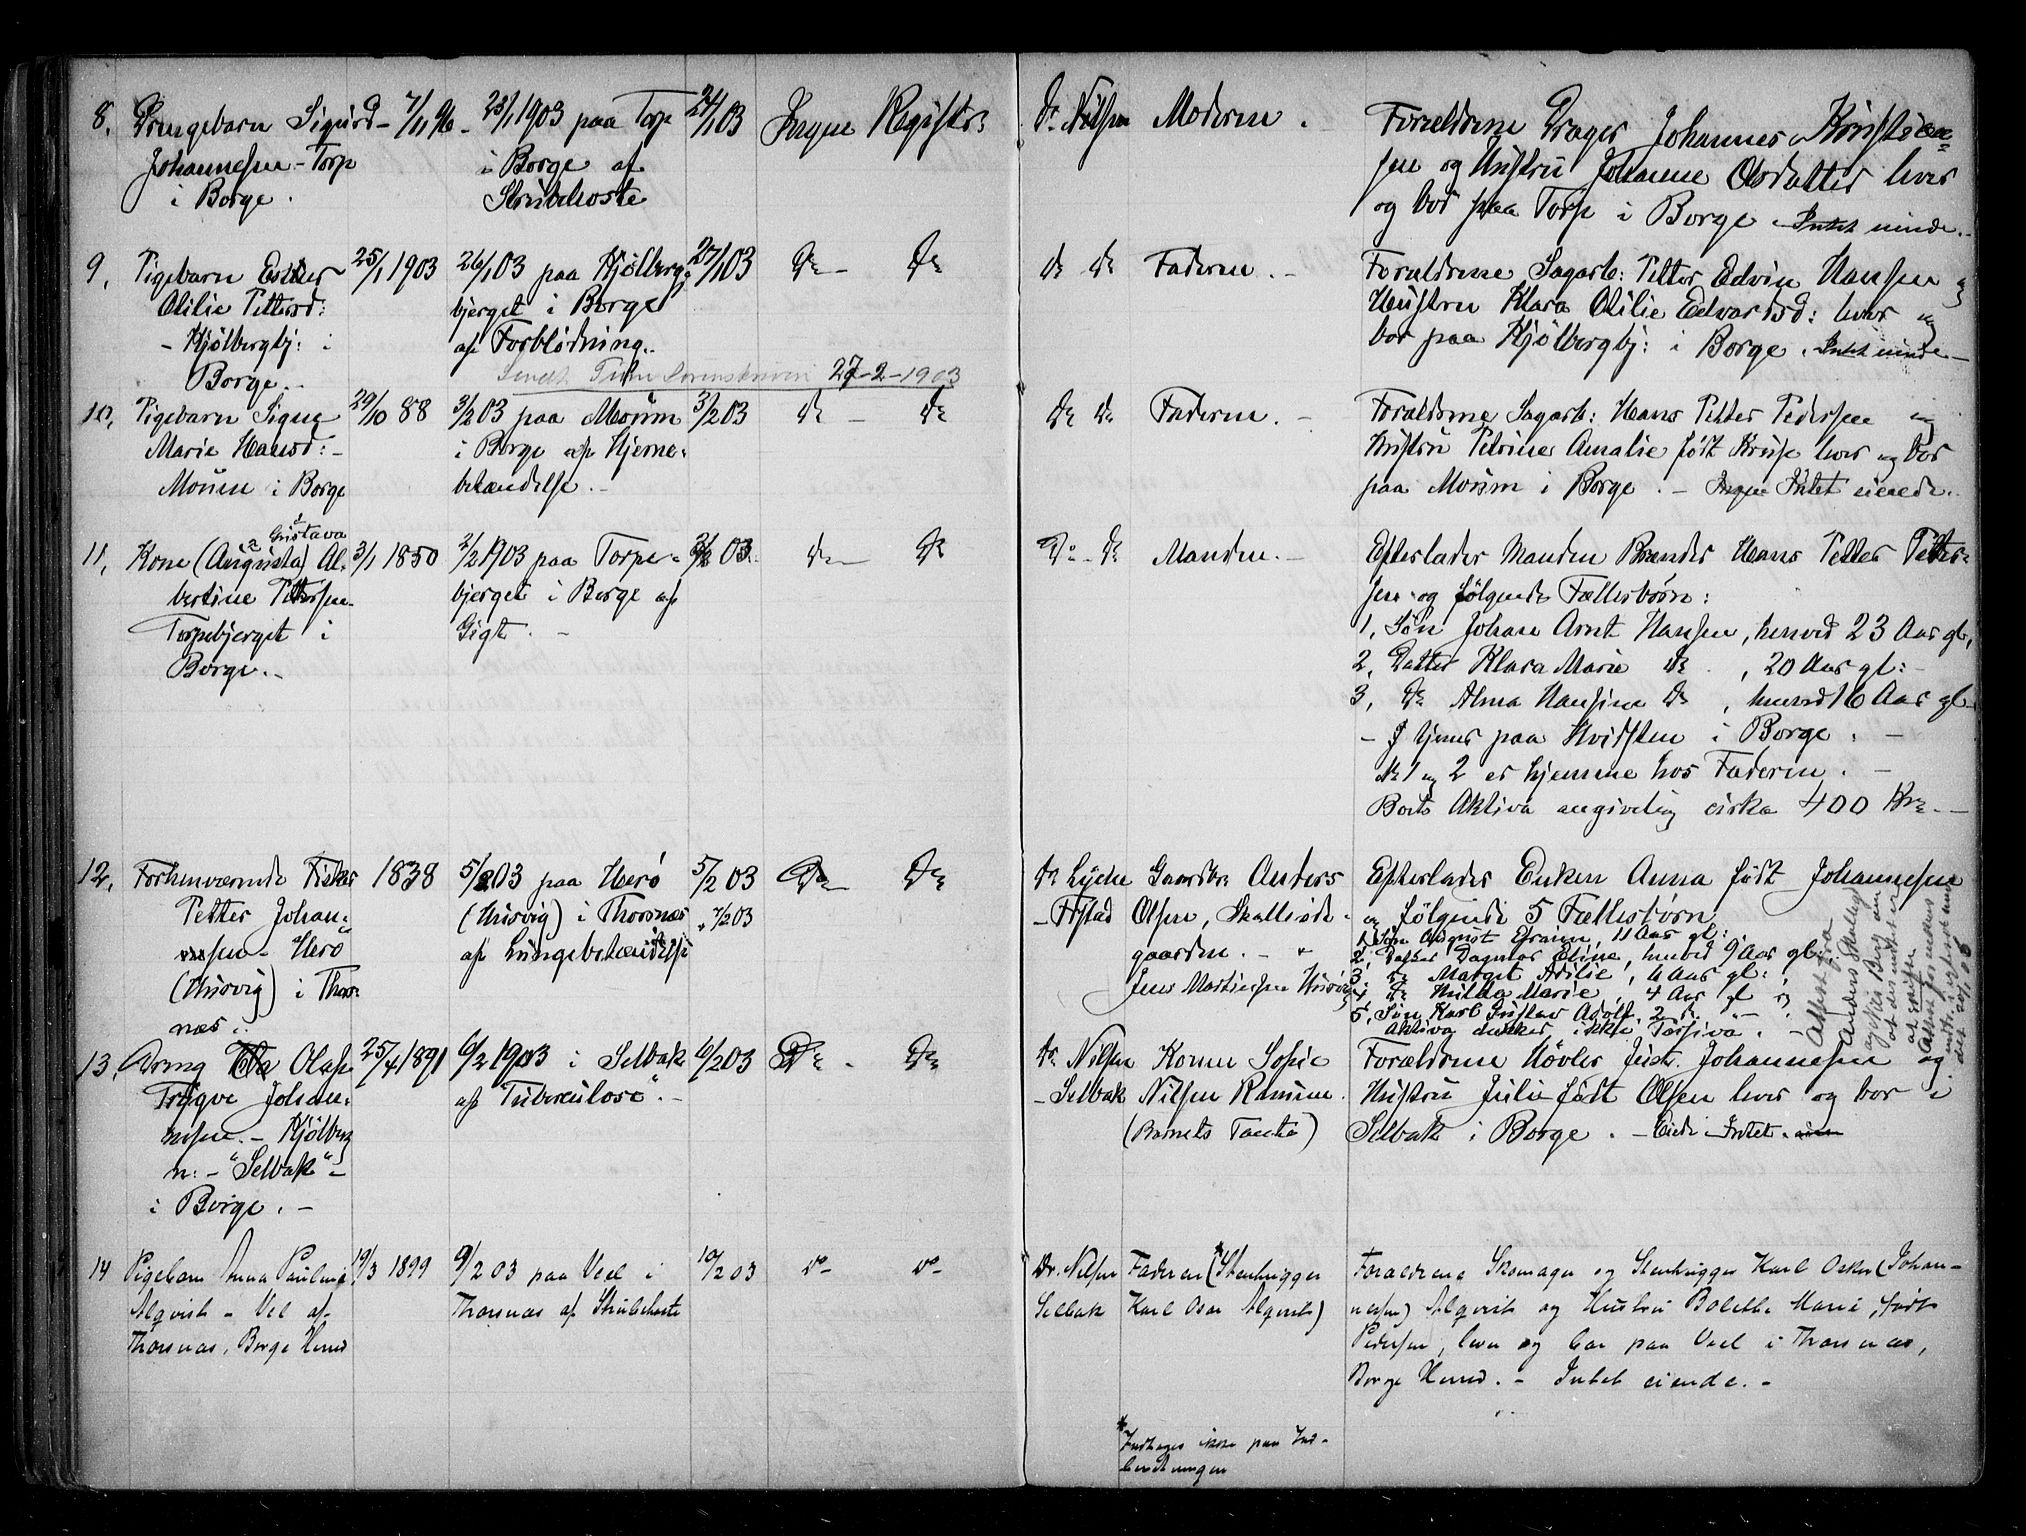 8. Drengebarn Sigurd Johannesen - Torp i Borge.
7/11 96
23/1 1903 paa Torp i Borge af Strubehoste
24/1 03
Ingen
Registr:
Dr. Nilsen
Moderen.
Forældrene Drager Johannes Kristian=
sen og Hustru Johanne Olsdatter lever
og bor paa Torp i Borge. Intet eiende.
9. Pigebarn Esther
Otilie Pettersd:
- Kjølbergbj: i
Borge.-
25/1 1903
26/1 03 paa Kjølberg=
bjerget i Borge
af Forblødning.
27/1 03
Do -
Do
do do
Faderen. -
Forældrene Sagarb: Petter Edvin Hansen og
Hustru Klara Otilie Edvardsd: lever og
bor paa Kjølbergbj: i Borge. Intet eiende -
Sendt 27-2-1903
10. Pigebarn Signe
Marie Hansd: -
Moum i Borge
29/10 88
3/2 03 paa Moum
i Borge af Hjerne=
betændelse. -
3/2 03
do -
do
do do
Faderen. -
Forældrene Sagarb: Hans Petter Pedersen og
Hustru Petrine Amalie født Kruse lever og bor
paa Moum i Borge. - Intet eiende.
11. Kone (Augusta) Al-
Gustava
bertine Pettersen
Torpebjerget i
Borge. -
3/1 1850
2/2 1903 paa Torpe=
bjerget i Borge af
Gigt. -
3/2 03.
do -
Do
Do - do
Manden. -
Efterlader Manden Brænder Hans Petter Petter=
sen og følgende Fællesbørn:
1, Søn Johan Arnt Hansen, henved 23 Aar gl,
2, Datter Klara Marie do , 20 Aar gl: -
3, do Alma Hansine do , henved 16 Aar gl
- 3 tjener paa Hvidsten i Borge. -
No 1 og 2 er hjemme hos Faderen. -
Boets Aktiva angivelig cirka 400 Kr. -
12. Forhenværende Fisker
Petter Johan=
sen - Herø
(Husvig) i Thors=
næs. -
1838
5/2 03 paa Herø
(Husvig) i Thorsnæs
af Lungebetændelse
5/2 03
7/2 03
Do -
Do
Dr Lyche
- Fr.stad
Gaardbr: Anders
Olsen, Skallerød=
gaarden. - "
Jens Martinsen Husvig
Efterlader Enken Anna født Johannesen
og følgende 5 Fællesbørn,
1, Søn August Efraim, 11 Aar gl:
2, Datter Dagmar Eline, henved 9 Aar gl:
3, do Margit Adilie, 6 Aar gl:
4, do Hilda Marie, 4 Aar gl og
5, Søn Karl Gustav Adolf, 2 do " -
Aktiva dækker ikke Passiva. -
Attest fra
Anders
13. Dreng Olaf
Trygve Johan=
nesen. - Kjølberg
n: - "Selbak" -
i Borge. -
25/4 1891
6/2 1903 i Selbak
af "Tuberculose". -
6/2 03
Do -
Do
Dr. Nilsen
- Selbak
Konen Sofie
Nilsen Remmen.
(Barnets Tante)
Forældrene Høvler Just. Johannesen og
Hustru Julie født Olsen lever og bor i
Selbak i Borge. - Eiede Intet.
14 Pigebarn Anna Pauline
Alqvist - Vel af
Thorsnæs, Borge Herred
19/3 1899
9/2 03 paa Vel i
Thorsnæs af Strubehoste
10/2 03
do -
do -
Dr. Nilsen
Selbak
Faderen (*Stenhugger
Karl Oscar Alqvist)
Forældrene Skomager og Stenhugger Karl Oskar (Johan-
nesen) Alqvist og Hustru Bolette Marie, født
Pedersen, lever og bor paa Vel i Thorsnæs,
Borge Herred. - Intet eiende. -
* Indtages ikke paa Ind-
beretningen